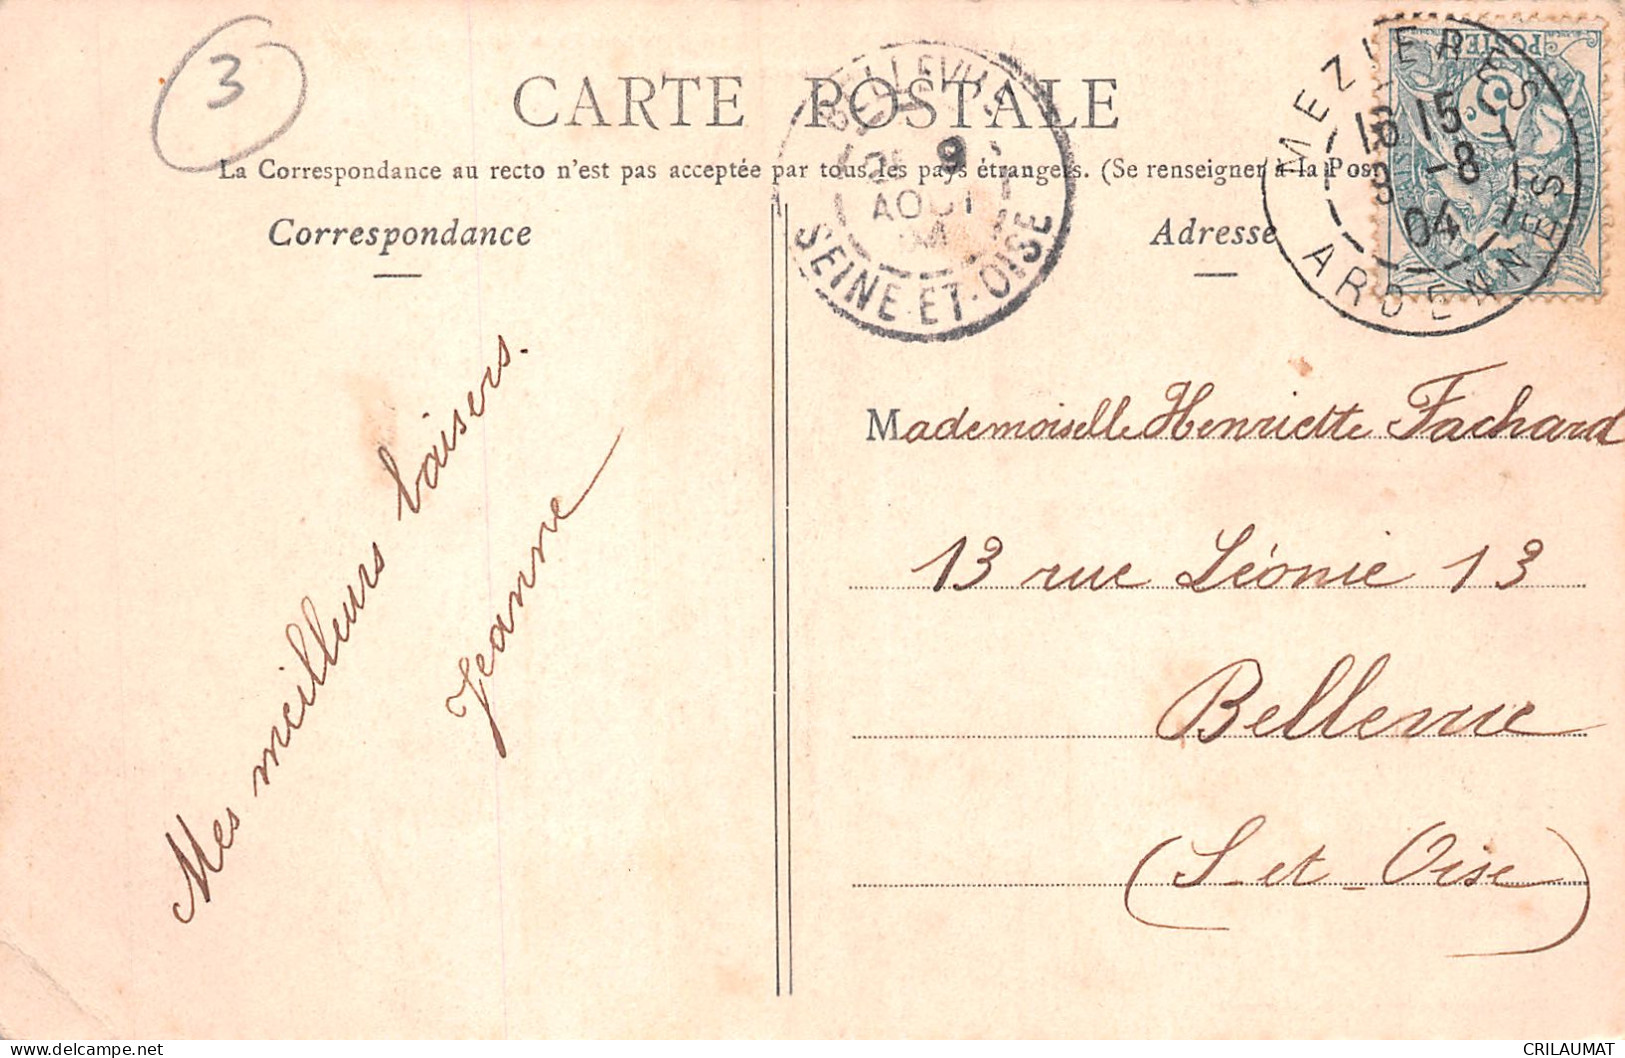 3
CARTE POSTALE
La Correspondance au recto n'est pas acceptée par tous les pays étrangers. (Se renseigner à la Pos
Correspondance
Adresse
SEINE-ET-OISE
9
AOUT
MEZIERES
15
-8
04
ARDENNES
POSTES
5
Mes meilleurs baisers.
Jeanne
Mademoiselle Henriette Fachard
13 rue Léonie 13
Bellevue
(S-et-Oise)
delcampe.net
CRILAUMAT